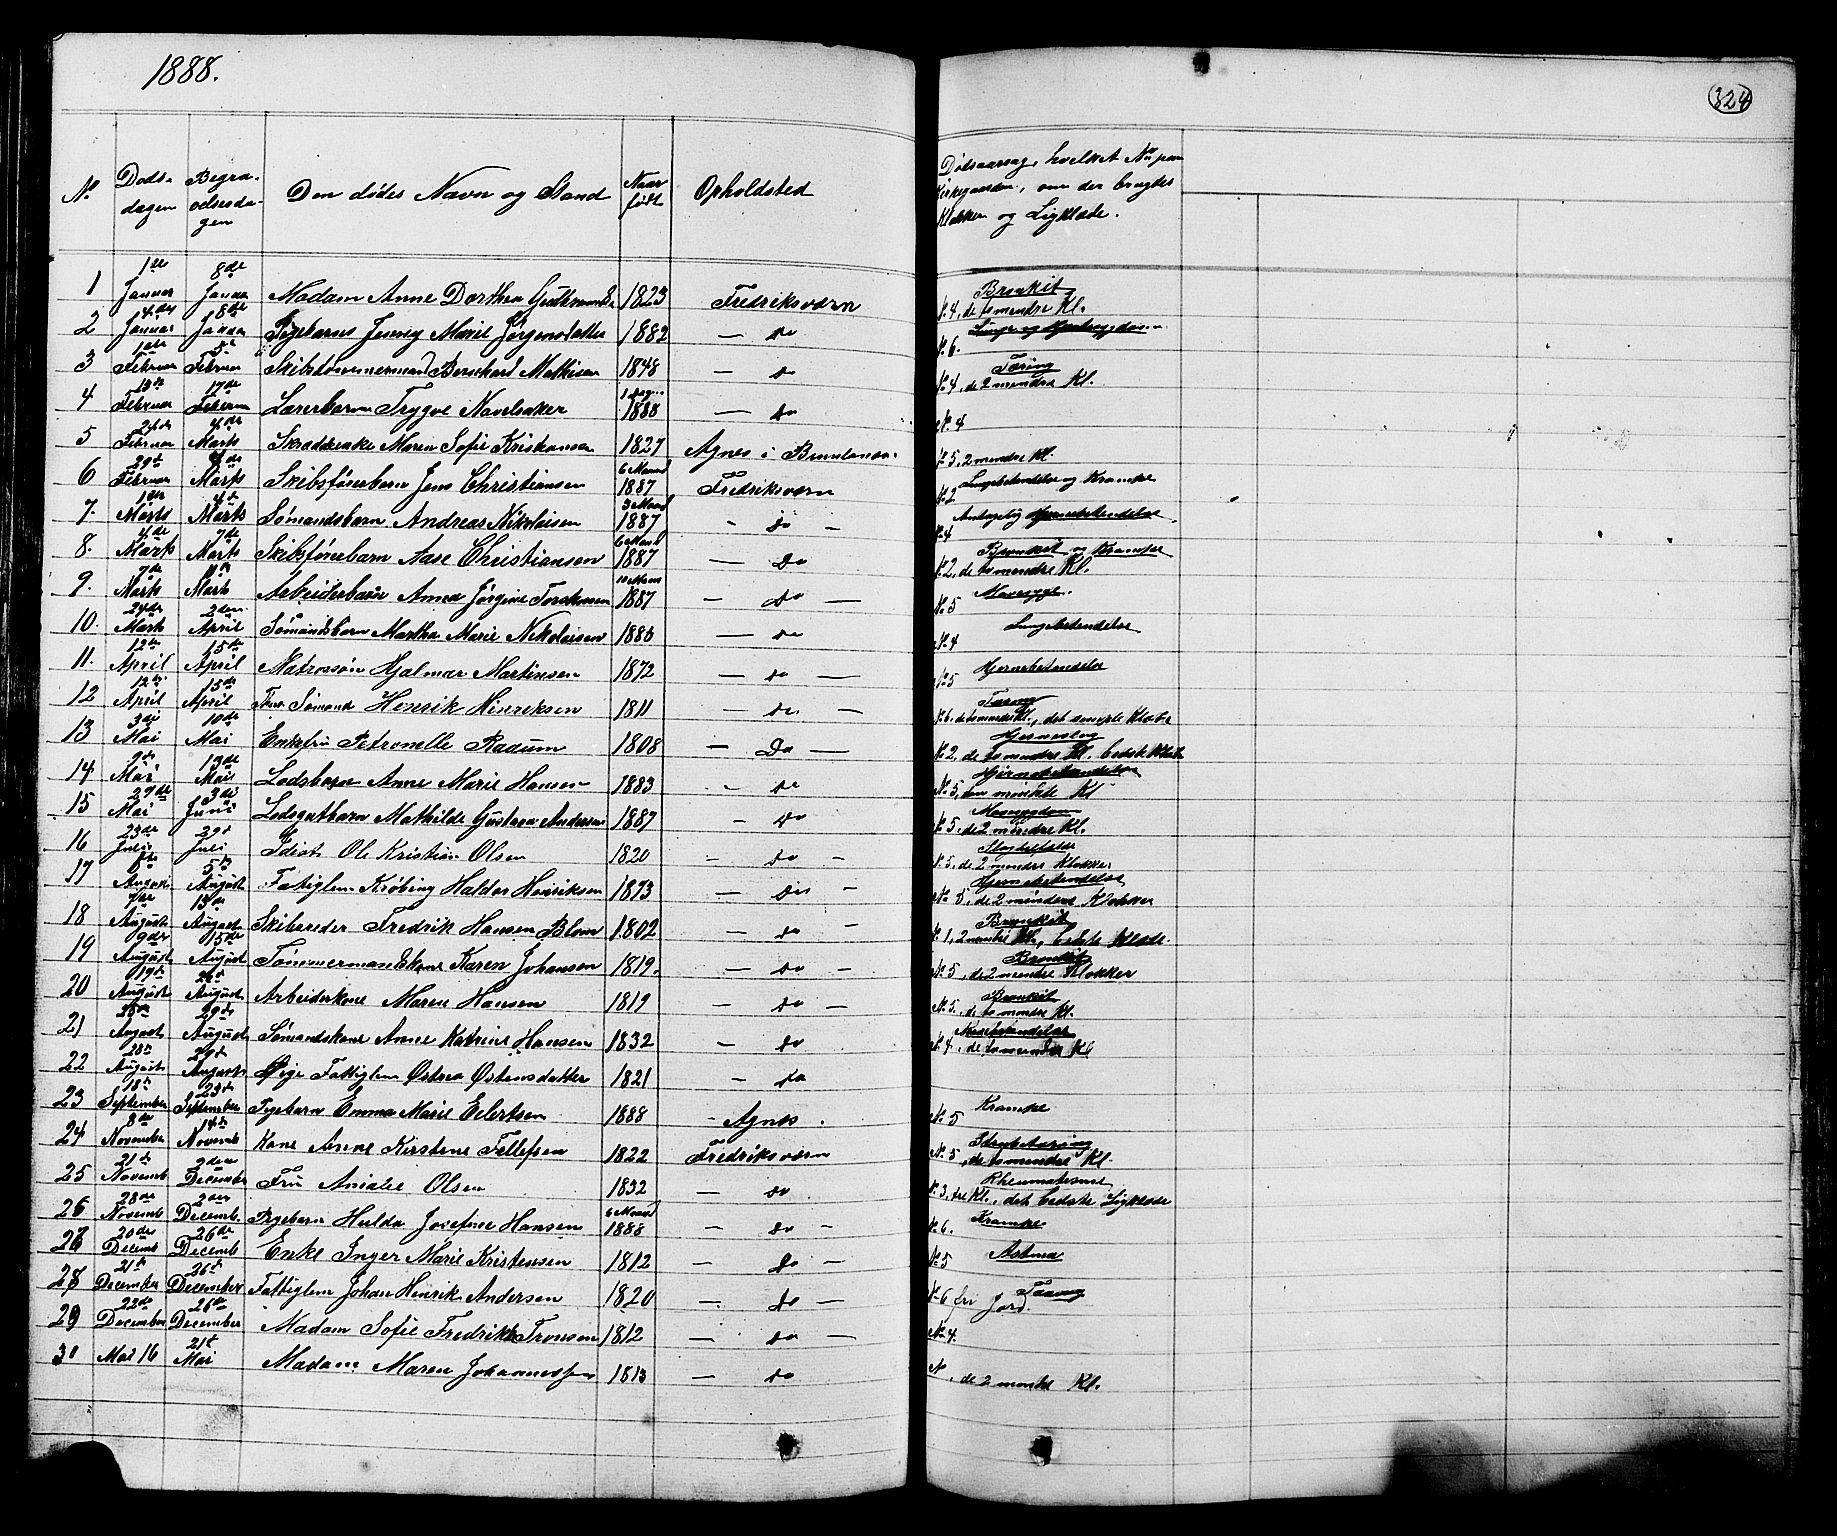 1888.
324
No
Døds-dagen
Begra-velsesda-gen
Den dødes Navn og Stand
Naar født
Opholdsted
Dødsaarsag, hvilket No paa Kirkegaarden, om der brugtes Klokker og Ligklæde.
1 1ste Januar 8de Januar Madam Anne Dorthea 1823 Fredriksværn Bronkit No 4, de to mendre Kl.
2 14de Januar 18de Januar Pigebarnet Jenny Marie Jørgensdatter 1882 — Do No 6.
3 1ste Februar 5te Februar Skibstømmermand Bernhard Mathisen 1848 — Do Tæring No 4, de 2 mendre Kl.
4 13de Februar 17de Februar Lærerbarn Trygve Navelsaker 1 Dag 1888 — Do No 4
5 24de Februar 4de Marts Skrædderenke Maren Sofie Kristiansen 1827 Agnes i Brunlanæs No 5, 2 mendre Kl.
6 29de Februar 4de Marts Skibsførerbarn Jens Christiansen 6 Maaned 1887 Fredriksværn No 2 Lungebetændelse og Krampe
7. 1ste Marts 4de Marts Sømandsbarn Andreas Nikolaisen 3 Maaned 1887 - Do — No 4 Antagelig Hjernebetændelse
8. 4de Marts 7de Marts Skibsførerbarn Aase Christiansen 6 Maaned 1887 — Do Bronkit og Krampe No 2, de to mendre Kl.
9. 7de Marts Marts Arbeiderbarn Anna Jørgine 10 Maaned 1887 — do — Mavesyge. No 5
10. 24de Mart 2den April Sømandsbarn Martha Marie Nikolaisen 1886 — Do Lungebetændelse No 4
11. 12te April 15de April Matrossøn Hjalmar Martinsen 1872 — Do — Hjernebetændelse No 5
12 12te April 15de April Sømand Henrik Hinriksen 1811 — Do — Tæring No 6. de to mendre Kl., det simple Klæde
13 3de Mai 10de Mai Enkefru Petronelle Radum 1808 — Do — Hjerneslag No 2, de to mendre Kl. bedste Klæde
14. 9de Mai 13de Mai Lodsbarn Anne Marie Hansen 1883 - Do Hjernebetændelse No 5, den mindste Kl
15 29de Mai 3de Juni Lodsgutbarn Mathilde Gustava Andersen 1887 — Do Mavesygdom No 5, de 2 mendre Kl.
16 23de Juli 29de Juli Idiot Ole Kristian Olsen 1820 - Do — Slagtilfælde No 5, de 2 mendre Klokker
17 August 5te August Fattiglem Krøbling Haldor Henriksen 1873 — Do — Hjernebetændelse No 5, de 2 mindste Klokker
18 7de August 13de August Skibsreder Fredrik Hansen Blom 1802 — Do — Bronkit No 1, 2 mendre Kl., bedste Klæde.
19 9de August 15de August Tømmermand Enke Karen Johansen 1819. — Do — Bronkit No 5, de 2 mendre Klokker
20 19de August 26de August Arbeiderkone Maren Hansen 1819 — Do — Bronkit No 5, de to mendre Kl.
21 25de August 29de August Sømandskone Anne Katrine Hansen 1832 — Do No 4, de to mendre Kl
22 25de August 29de August Pige Fattiglem Østrea Østensdatter 1821 — Do
23 18de September 23de September Pigebarn Emma Marie Eilertsen 1888 - Agnes. Krampe No 5
24 8de November 14de Novemb Kone Anne Kirstene Tellefsen 1822 Fredriksværn No 5, de to mendre Kl.
25 21de Novemb 2den December Fru Amalie Olsen 1832 — Do Rheumatisme No 3, tre Kl., det bedste Ligklæde
26 28de Novemb 2den Decemb Pigebarn Hulda Josefine Hansen 6 Maaned 1888 — Do — Krampe No 6.
26 20de Decemb 26de Decemb Enke Inger Marie Kristensen 1812 — Do — Astma No 5
27 21de December 26de December Fattiglem Johan Hinrik Andersen 1820 — Do — Tæring No 6 fri Jord.
29 22de December 26de December Madam Sofie Fredrikke Tronsen 1812 — Do — No 4.
30 Mai 16 21de Mai Madam Maren Johannesen 1813 — Do No , de 2 mendre Kl.